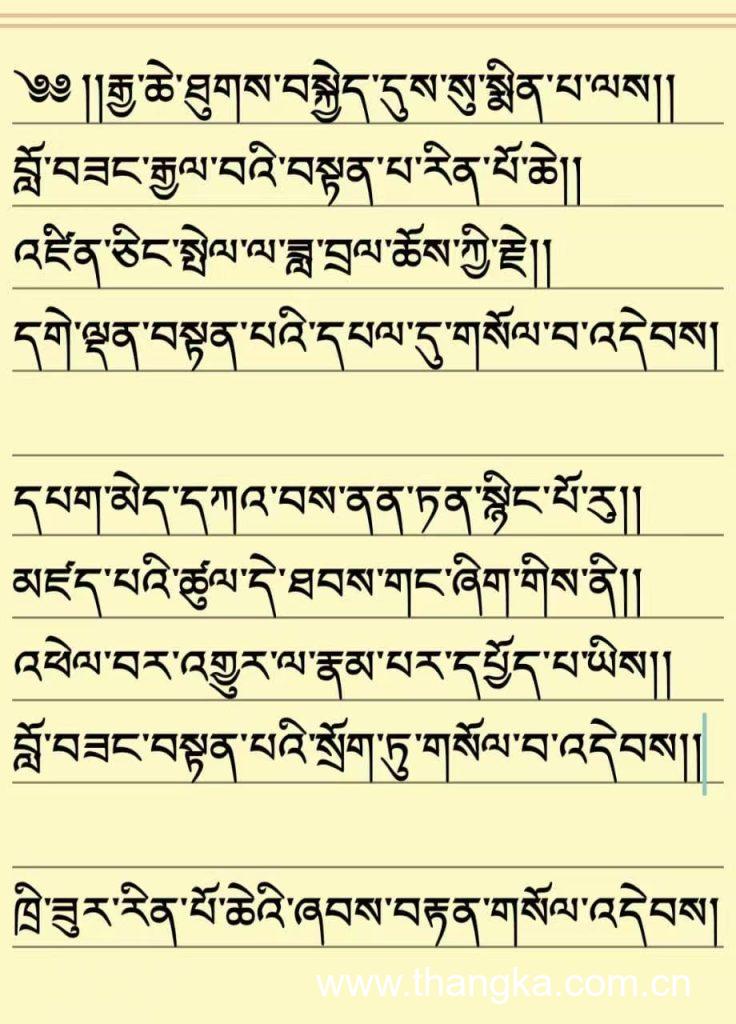 ༄༅ །།རྒྱ་ཆེ་ཐུགས་བསྐྱེད་དུས་སུ་སྨིན་པ་ལས།།
བློ་བཟང་རྒྱལ་བའི་བསྟན་པ་རིན་པོ་ཆེ།།
འཛིན་ཅིང་སྤེལ་ལ་ཟླ་བྲལ་ཆོས་ཀྱི་རྗེ།།
དགེ་ལྡན་བསྟན་པའི་དཔལ་དུ་གསོལ་བ་འདེབས།
དཔག་མེད་དཀའ་བས་ནན་ཏན་སྙིང་པོ་རུ།།
མཛད་པའི་ཚུལ་དེ་ཐབས་གང་ཞིག་གིས་ནི།།
འཕེལ་བར་འགྱུར་ལ་རྣམ་པར་དཔྱོད་པ་ཡིས།།
བློ་བཟང་བསྟན་པའི་སྲོག་ཏུ་གསོལ་བ་འདེབས།།
ཁྲི་ཟུར་རིན་པོ་ཆེའི་ཞབས་བརྟན་གསོལ་འདེབས།
www.thangka.com.cn